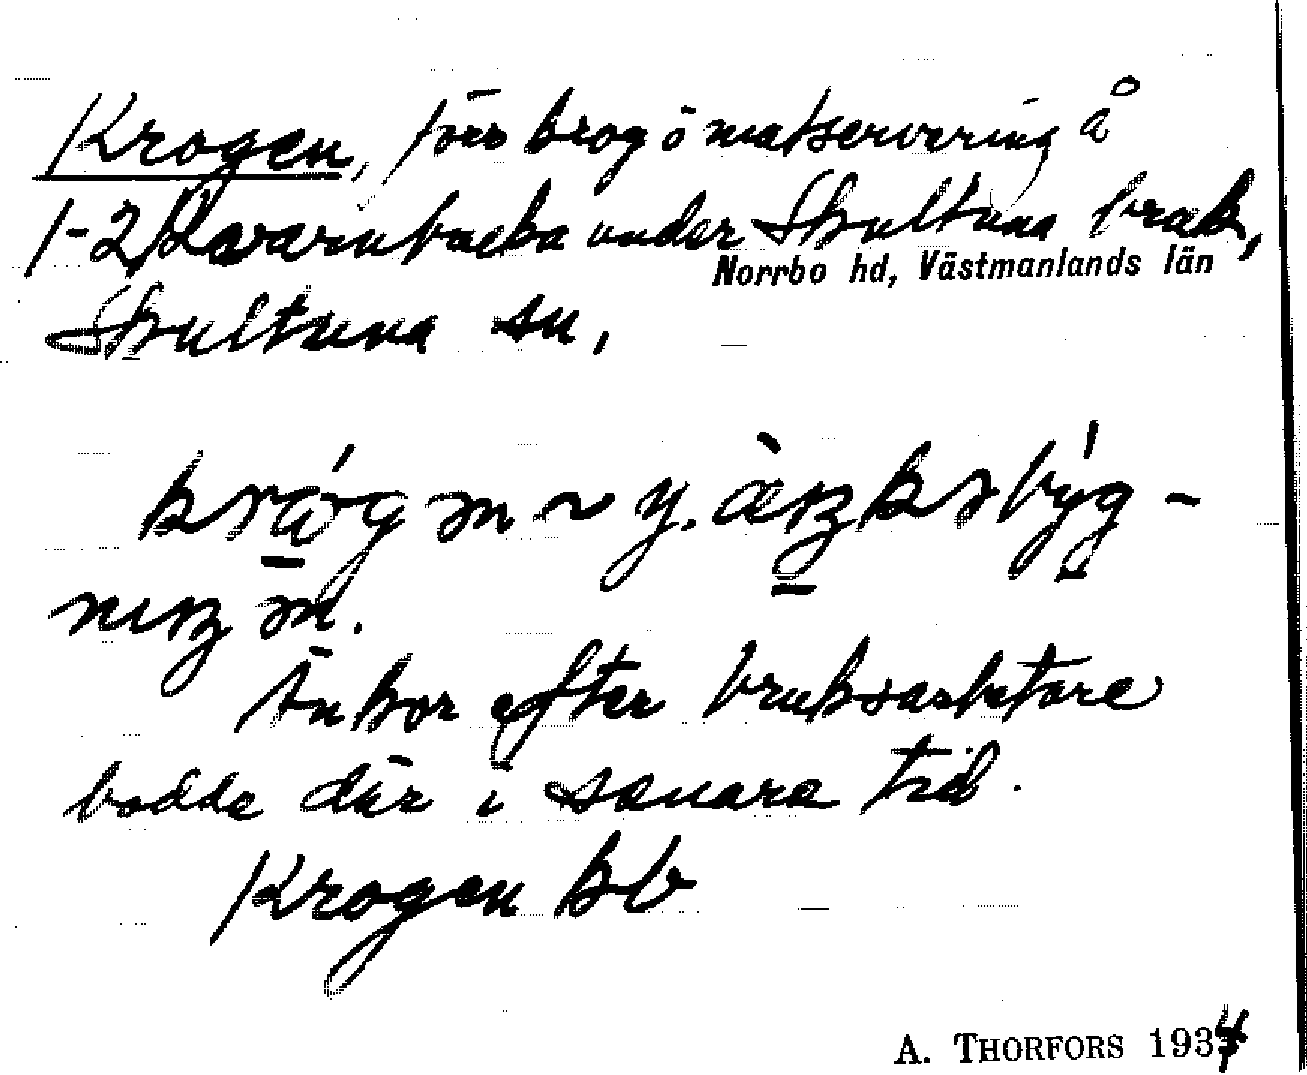 Krogen, förr krog ö matservering å
1-2 Kvarnbacka under Skultuna bruk,
Norrbo hd, Västmanlands län
Skultuna sn,
Änkor efter bruksarbetare
bodde där i senare tid.
Krogen kb
A. THORFORS 1934